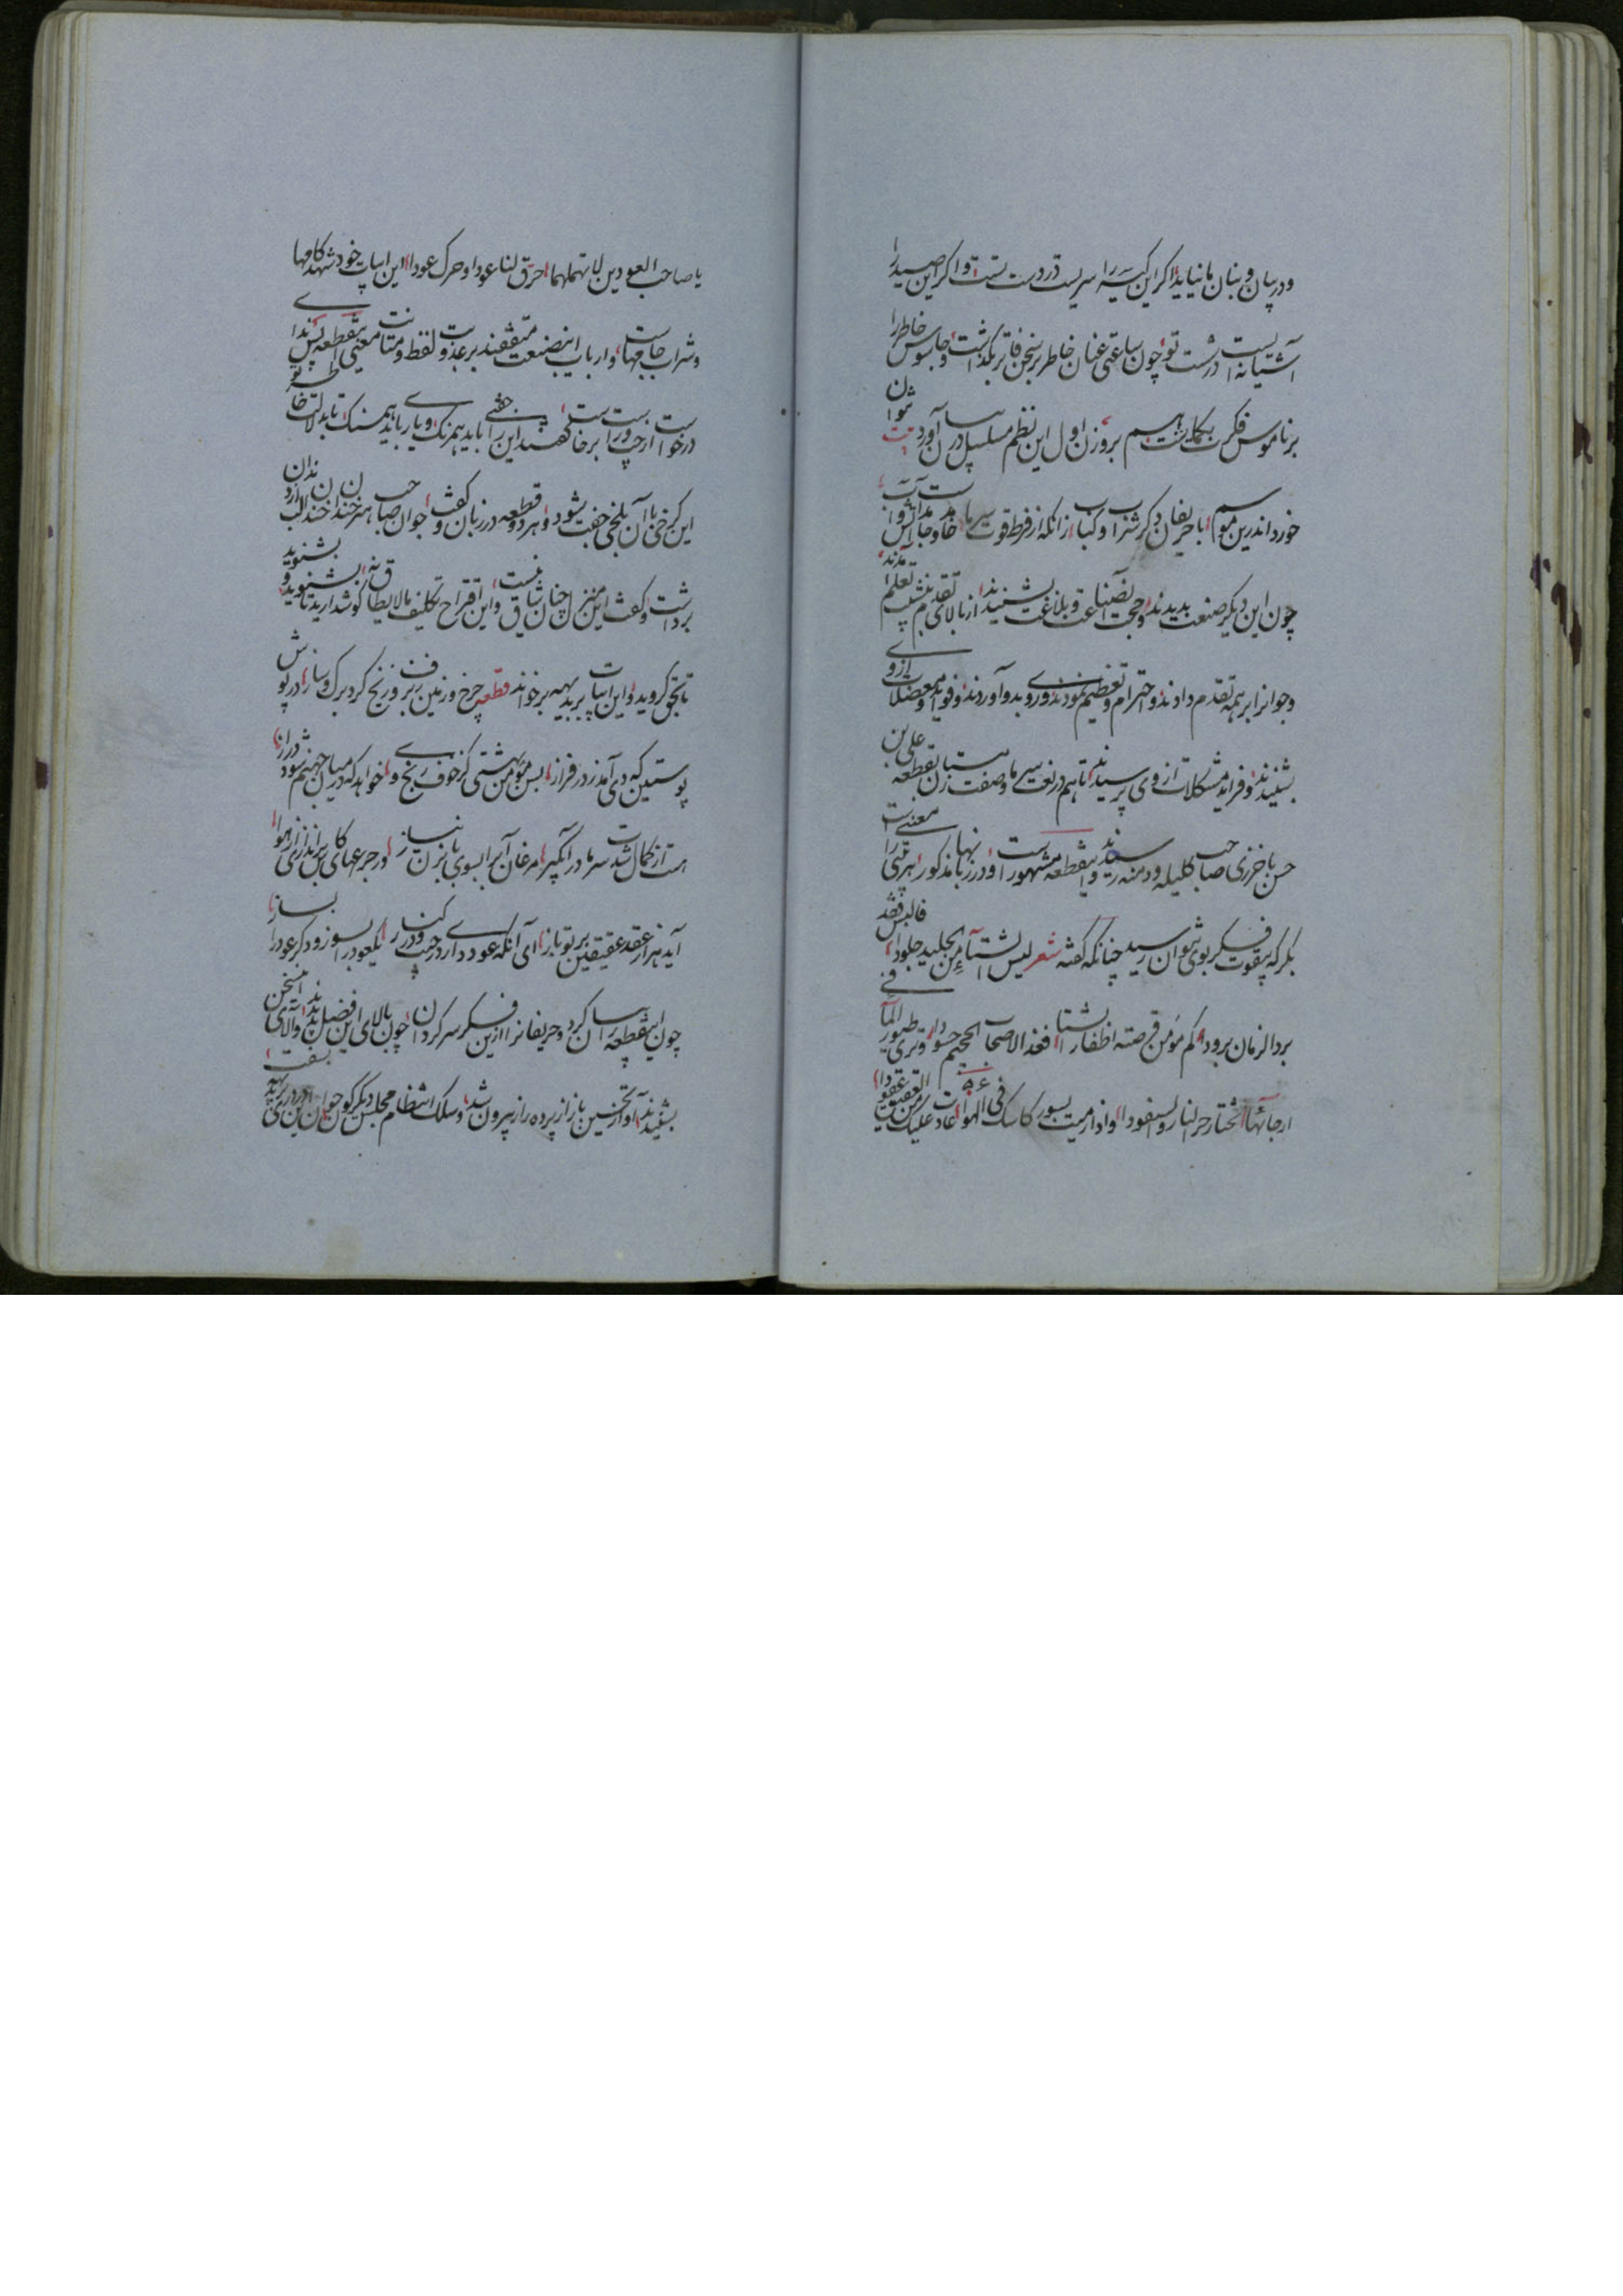 و در بیان و بنان ما نیاید اگر این کیسه را سریست در دست تست و اگر این صید را
آشیانه ایست در شست تو چون ساعتی عنان خاطر بر سخن فاتر بگذاشت و جاسوس خاطر را
بر ناموس فکرت بگماشت هم بر وزن اول این نظم مسلسل در بیان آورد
خورد اندرین موسم با حریفان دگر شراب و کباب زانکه از فرط قوت سرما
چون این دیگر صنعت بدیدند و حجت این صناعت و بلاغت بشنیدند از بالای تقدم بنشیب تعلم آمدند
و جوانرا بر همه تقدم دادند و احترام و تعظیم نمودند و روی بدو آوردند و فواید و معضلات از وی
بشنیدند و فراید مشکلات از وی پرسیدند تا هم در نعت سرما و صفت زمستان بقطعه علی بن
حسن باخرزی صاحب کلیله و دمنه رسیدند و این قطعه مشهور است و در زبانها مذکور هر بیتی را معنی است
بکر که بقوت فکر بوی نتوان رسید چنانکه گفته شعر لبس الشتاء من الجلید جلودا فالبس فقد
برد الزمان برودا کم مؤمن قرصته اظفار الشتا فغدا لاصحاب الجحیم حسودا وتری طیور الماء فی
ارجائها تختار حر النار والسفودا واذا رمیت بسور کاسک فی الهوا عادت علیک من العقیق عقودا
یا صاحب العودین لا تهملهما حرق لنا عودا وحرک عودا این ابیات خود شهد کامها
و شراب جامهاست و ارباب این صنعت متفقند بر عذوبت لفظ و متانت معنی این قطعه پس
درخواست از چپ و راست برخاست گفتند این را جفتی باید هم رنگ و یاری باید هم سنگ تا بدلالت خاطر تو
این کرخی با آن بلخی جفت شود و هر دو قطعه در زبان گفت جوان صاحب هنر خندان خندان لب
برداشت و گفت این منزل چنان شاق نیست و این اقتراح تکلیف مالایطاق نه گوش دارید تا بشنوید و
تا بحق گروید و این ابیات بر بدیهه بر خواند قطعه چرخ و زمین ز برف و ز یخ کرد برگ و ساز در پوش
پوستین که دی آمد ز در فراز بس مؤمن بهشتی کز خوف رنج دی خواهد که در میان جهنم شود دراز
است از کمال شدت سرما در آبگیر مرغان آب را بسوی بابزن نیاز ور جرعهای کاس براندازی از هوا
آید هزار عقد عقیقین بر تو باز ای آنکه عود داری در جیب و در کنار یک عود را بسوز و دگر عود را بساز
چون این قطعه بیان کرد و حریفانرا ازین فکر سرگردان چون بالای این فضل بدیدند و آلای این سخن
بشنیدند آواز تحسین باز از پرده راز بیرون شد و سلک انتظام مجلس دیگرگون